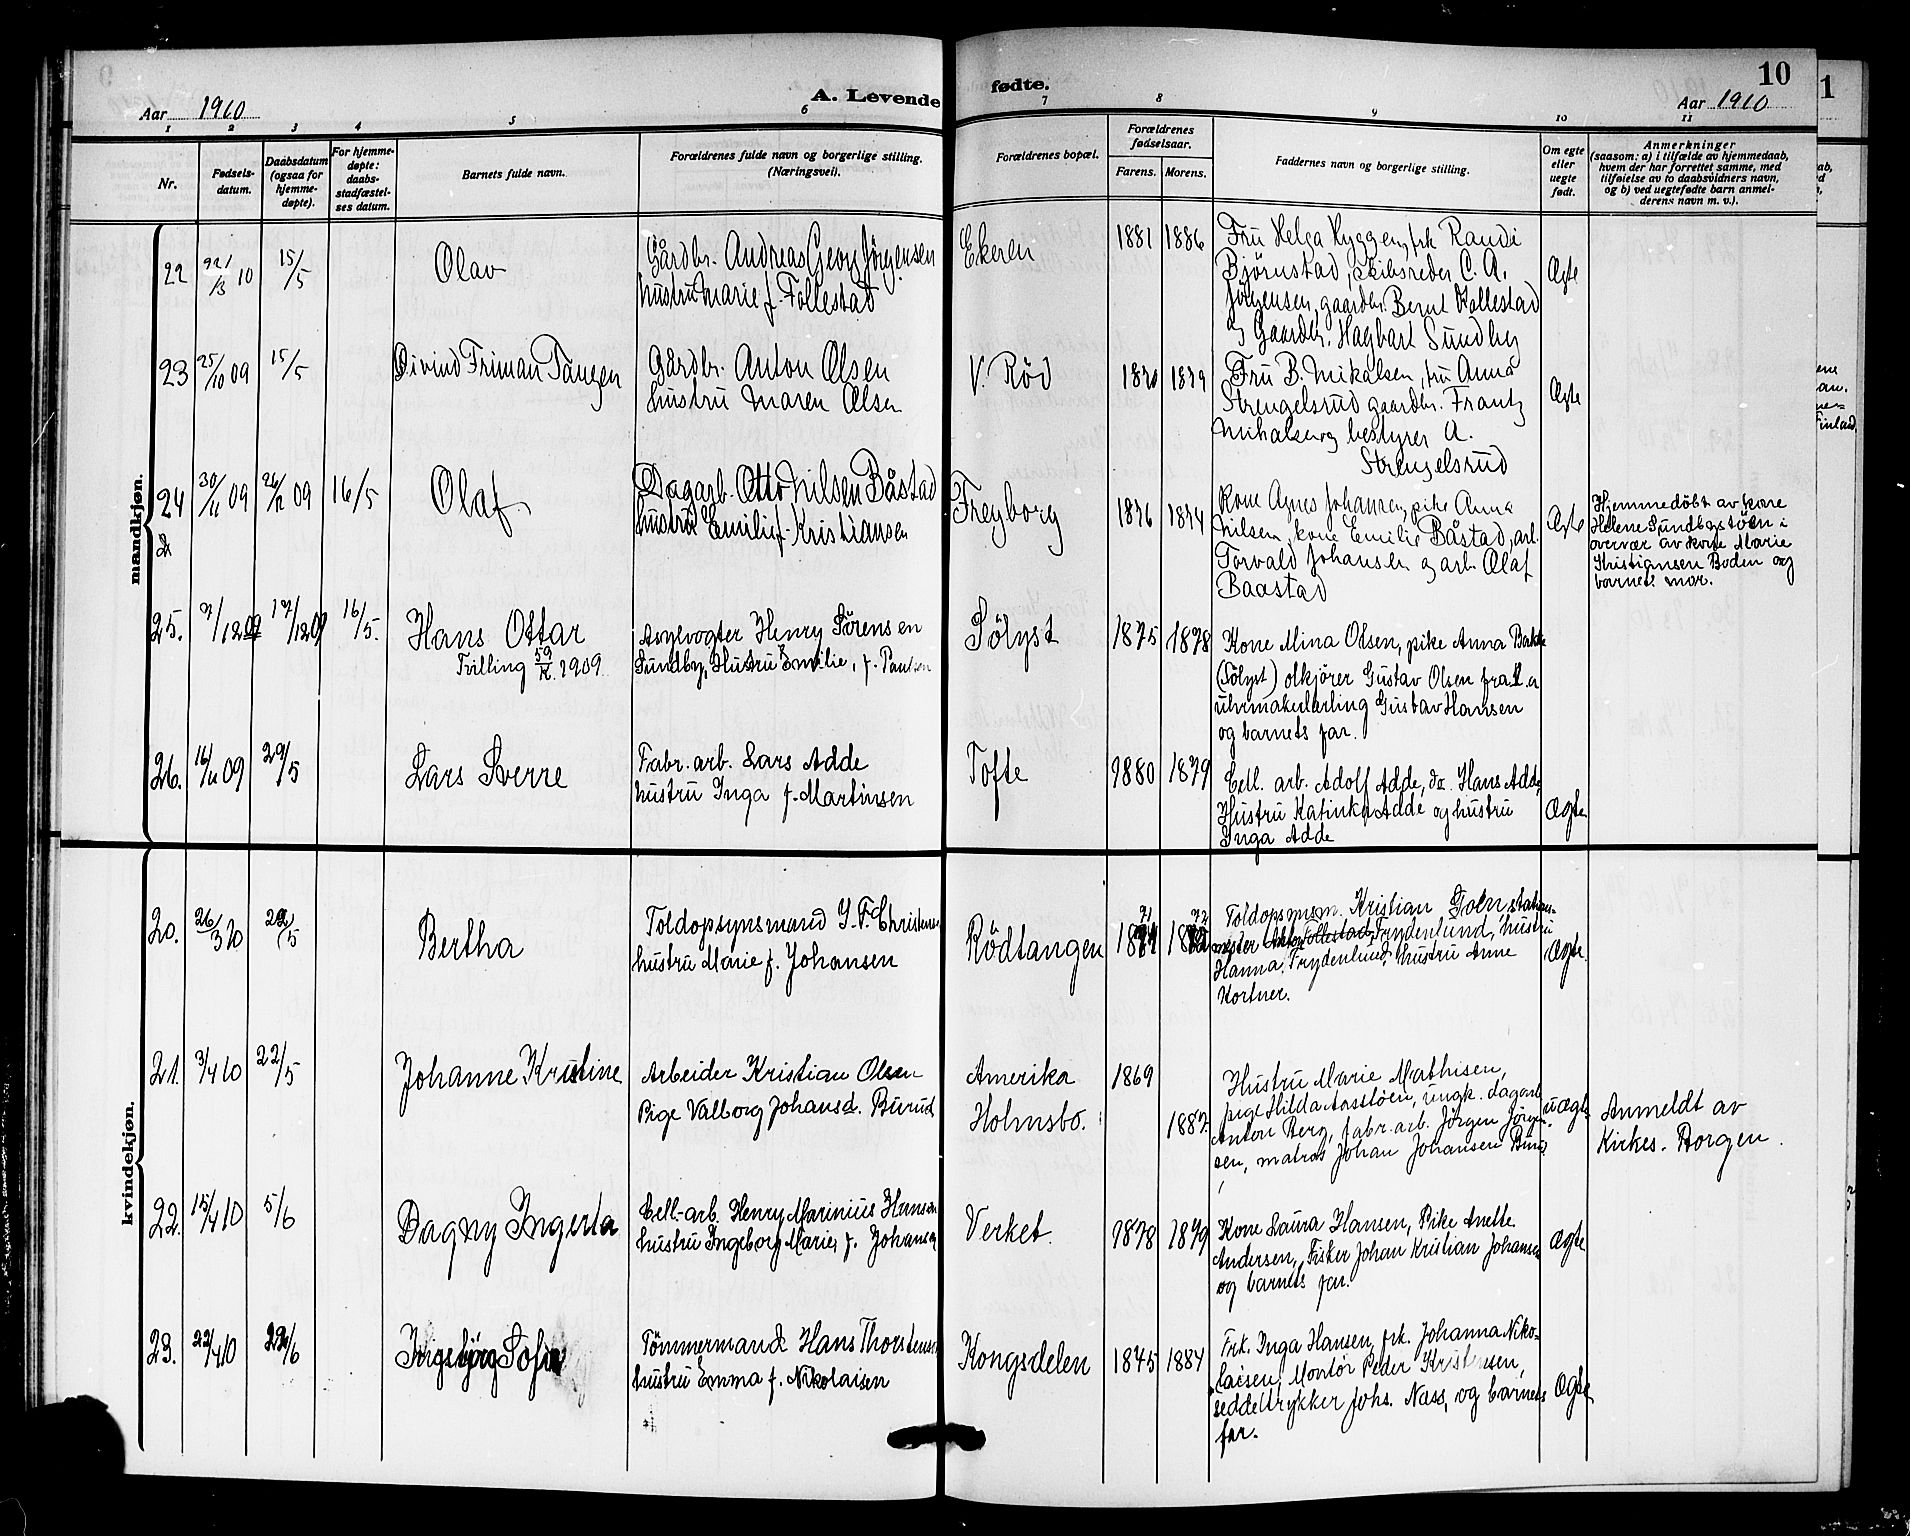 Aar 1910
A. Levende fødte.
Aar 1910
10
1 2 3 4 5 6 7 8 9 10 11
Nr.
Fødsels-
datum.
Daabsdatum
(ogsaa for
hjemme-
døpte).
For hjemme-
døpte:
daabs-
stadfæstel-
ses datum.
Barnets fulde navn.
Forældrenes fulde navn og borgerlige stilling.
(Næringsvei).
Forældrenes bopæl.
Forældrenes
fødselsaar.
Farens. Morens.
Faddernes navn og borgerlige stilling.
Om egte
eller
uegte
født.
Anmerkninger
(saasom: a) i tilfælde av hjemmedaab,
hvem der har forrettet samme, med
tilføielse av to daabsvidners navn,
og b) ved uegtefødte barn anmel-
derens navn m. v.).
mandkjøn.
22 22/3 10 15/5
Olav
Gårdbr. Andreas Georg Jörgensen
hustru Marie f. Follestad
Ekeren
1881 1886
Fru Helga Kyggen, frk Randi
Björnstad, skibsreder C. A.
Jörgensen, gaardbr. Bernt Follestad
og Gaardbr. Hagbart Sundby
Ægte
23 25/10 09 15/5
Öivind Friman Tangen
Gårdbr. Anton Olsen
hustru Maren Olsen
V. Röd
Fru B. Mikalsen, fru Anna
Strengelsrud gaardbr. Frantz
Mikalsen og bestyrer A.
Strengelsrud
Ægte
24 30/11 09 26/12 09 16/5
Olaf
Dagarb. Otto Nilsen Båstad
hustru Emilie f. Kristiansen
Freyborg
Kone Agnes Johansen, pike Anna
Nilsen, kone Emilie Båstad, arb.
Torvald Johansen og arb. Olaf
Baastad
Ægte
Hjemmedöbt av kone
Helene Sundbystöen i
overvær av kone Marie
Kristiansen Boden og
barnets mor.
25. 7/12 09 17/12 09 16/5.
Hans Ottar
Tvilling 59/K. 1909.
Asylvogter Henry Sörensen
Sundby, Hustru Emilie, f. Paulsen
Sölyst
1875 1878
Kone Mina Olsen, pike Anna Bakke
(Sölyst) olkjörer Gustav Olsen
urmakerlærling Gustav Hansen
og barnets far.
26. 16/11 09 29/5
Lars Sverre
Fabr. arb. Lars Adde
hustru Inga f. Martinsen
Tofte
1880 1879
Cell. arb. Adolf Adde, do. Hans Adde,
Hustru Katinka Adde og hustru
Inga Adde
Ægte
kvindekjøn.
20. 26/3 10
Bertha
Toldopsynsmand J. F. Christensen
hustru Marie f. Johansen
Rödtangen
71 72
Toldopsmsm. Kristian Toen, stations-
mester Frydenlund, hustru
Hanna Frydenlund, hustru Anne
Kortner.
Ægte.
21. 3/4 10 22/5
Johanne Kristine
Arbeider Kristian Olsen
Pige Valborg Johansd. Burud
Amerika
Holmsbo.
1869
1887.
Hustru Marie Mathisen,
pige Hilda Aasstöen, ungk. dagarb.
Anton Berg, fabr. arb. Jörgen Jörgen-
sen, matros Johan Johansen Burud
uægte
Anmeldt av
Kirkes. Borgen.
22. 15/4 10 5/6
Dagny Ingerta
Cell.-arb. Henry Marinius Hansen
hustru Ingeborg Marie, f. Johansen
Verket.
1878 1879
Kone Laura Hansen, Pike Anette
Andersen, Fisker Johan Kristian Johansen
og barnets far.
Ægte
23. 22/4 10
Ingebjörg Sofie
Tömmermand Hans Thorstensen
hustru Emma f. Nikolaisen
Kongsdelen
1845 1884
Frk. Inga Hansen, frk. Johanna Niko-
laisen, Montör Peder Kristensen,
seddeltrykker Johs. Næss, og barnets
far.
Ægte